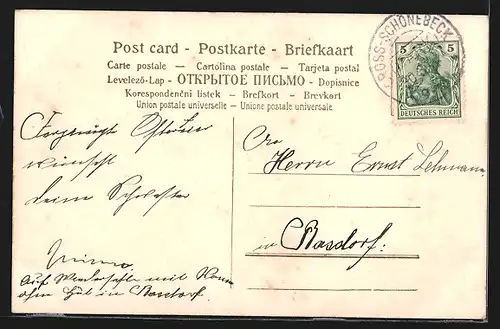 Post card - Postkarte - Briefkaart
Carte postale — Cartolina postale — Tarjeta postal
Levelező-Lap - ОТКРЫТОЕ ПИСЬМО - Dopisnice
Korespondenční lístek - Brefkort - Brevkort
Union postale universelle - Unione postale universale.
GROSS-SCHÖNEBECK
5 5
DEUTSCHES REICH
wünscht
deine Schwester
Minna
Auf Wiedersehn mit
in Basdorf.
An
Herrn Ernst Lehmann
in Basdorf.